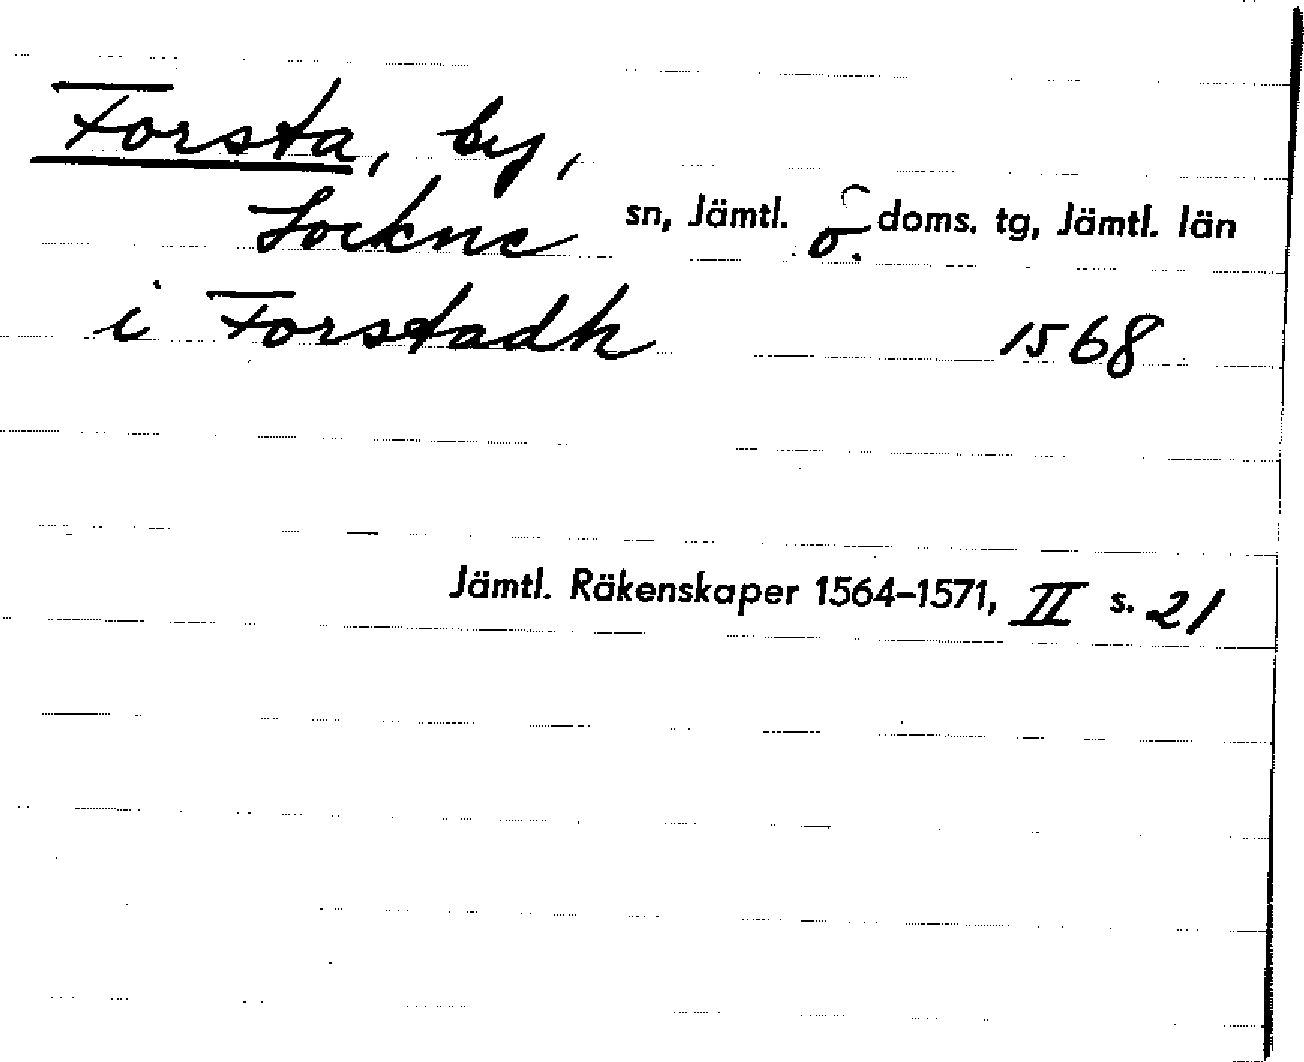 Forsta, by,
Lockne sn, Jämtl. ö. doms. tg, Jämtl. län
i Forstadh 1568
Jämtl. Räkenskaper 1564–1571, II s. 21